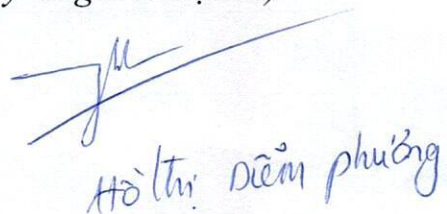 Hồ Thị Diễm phương